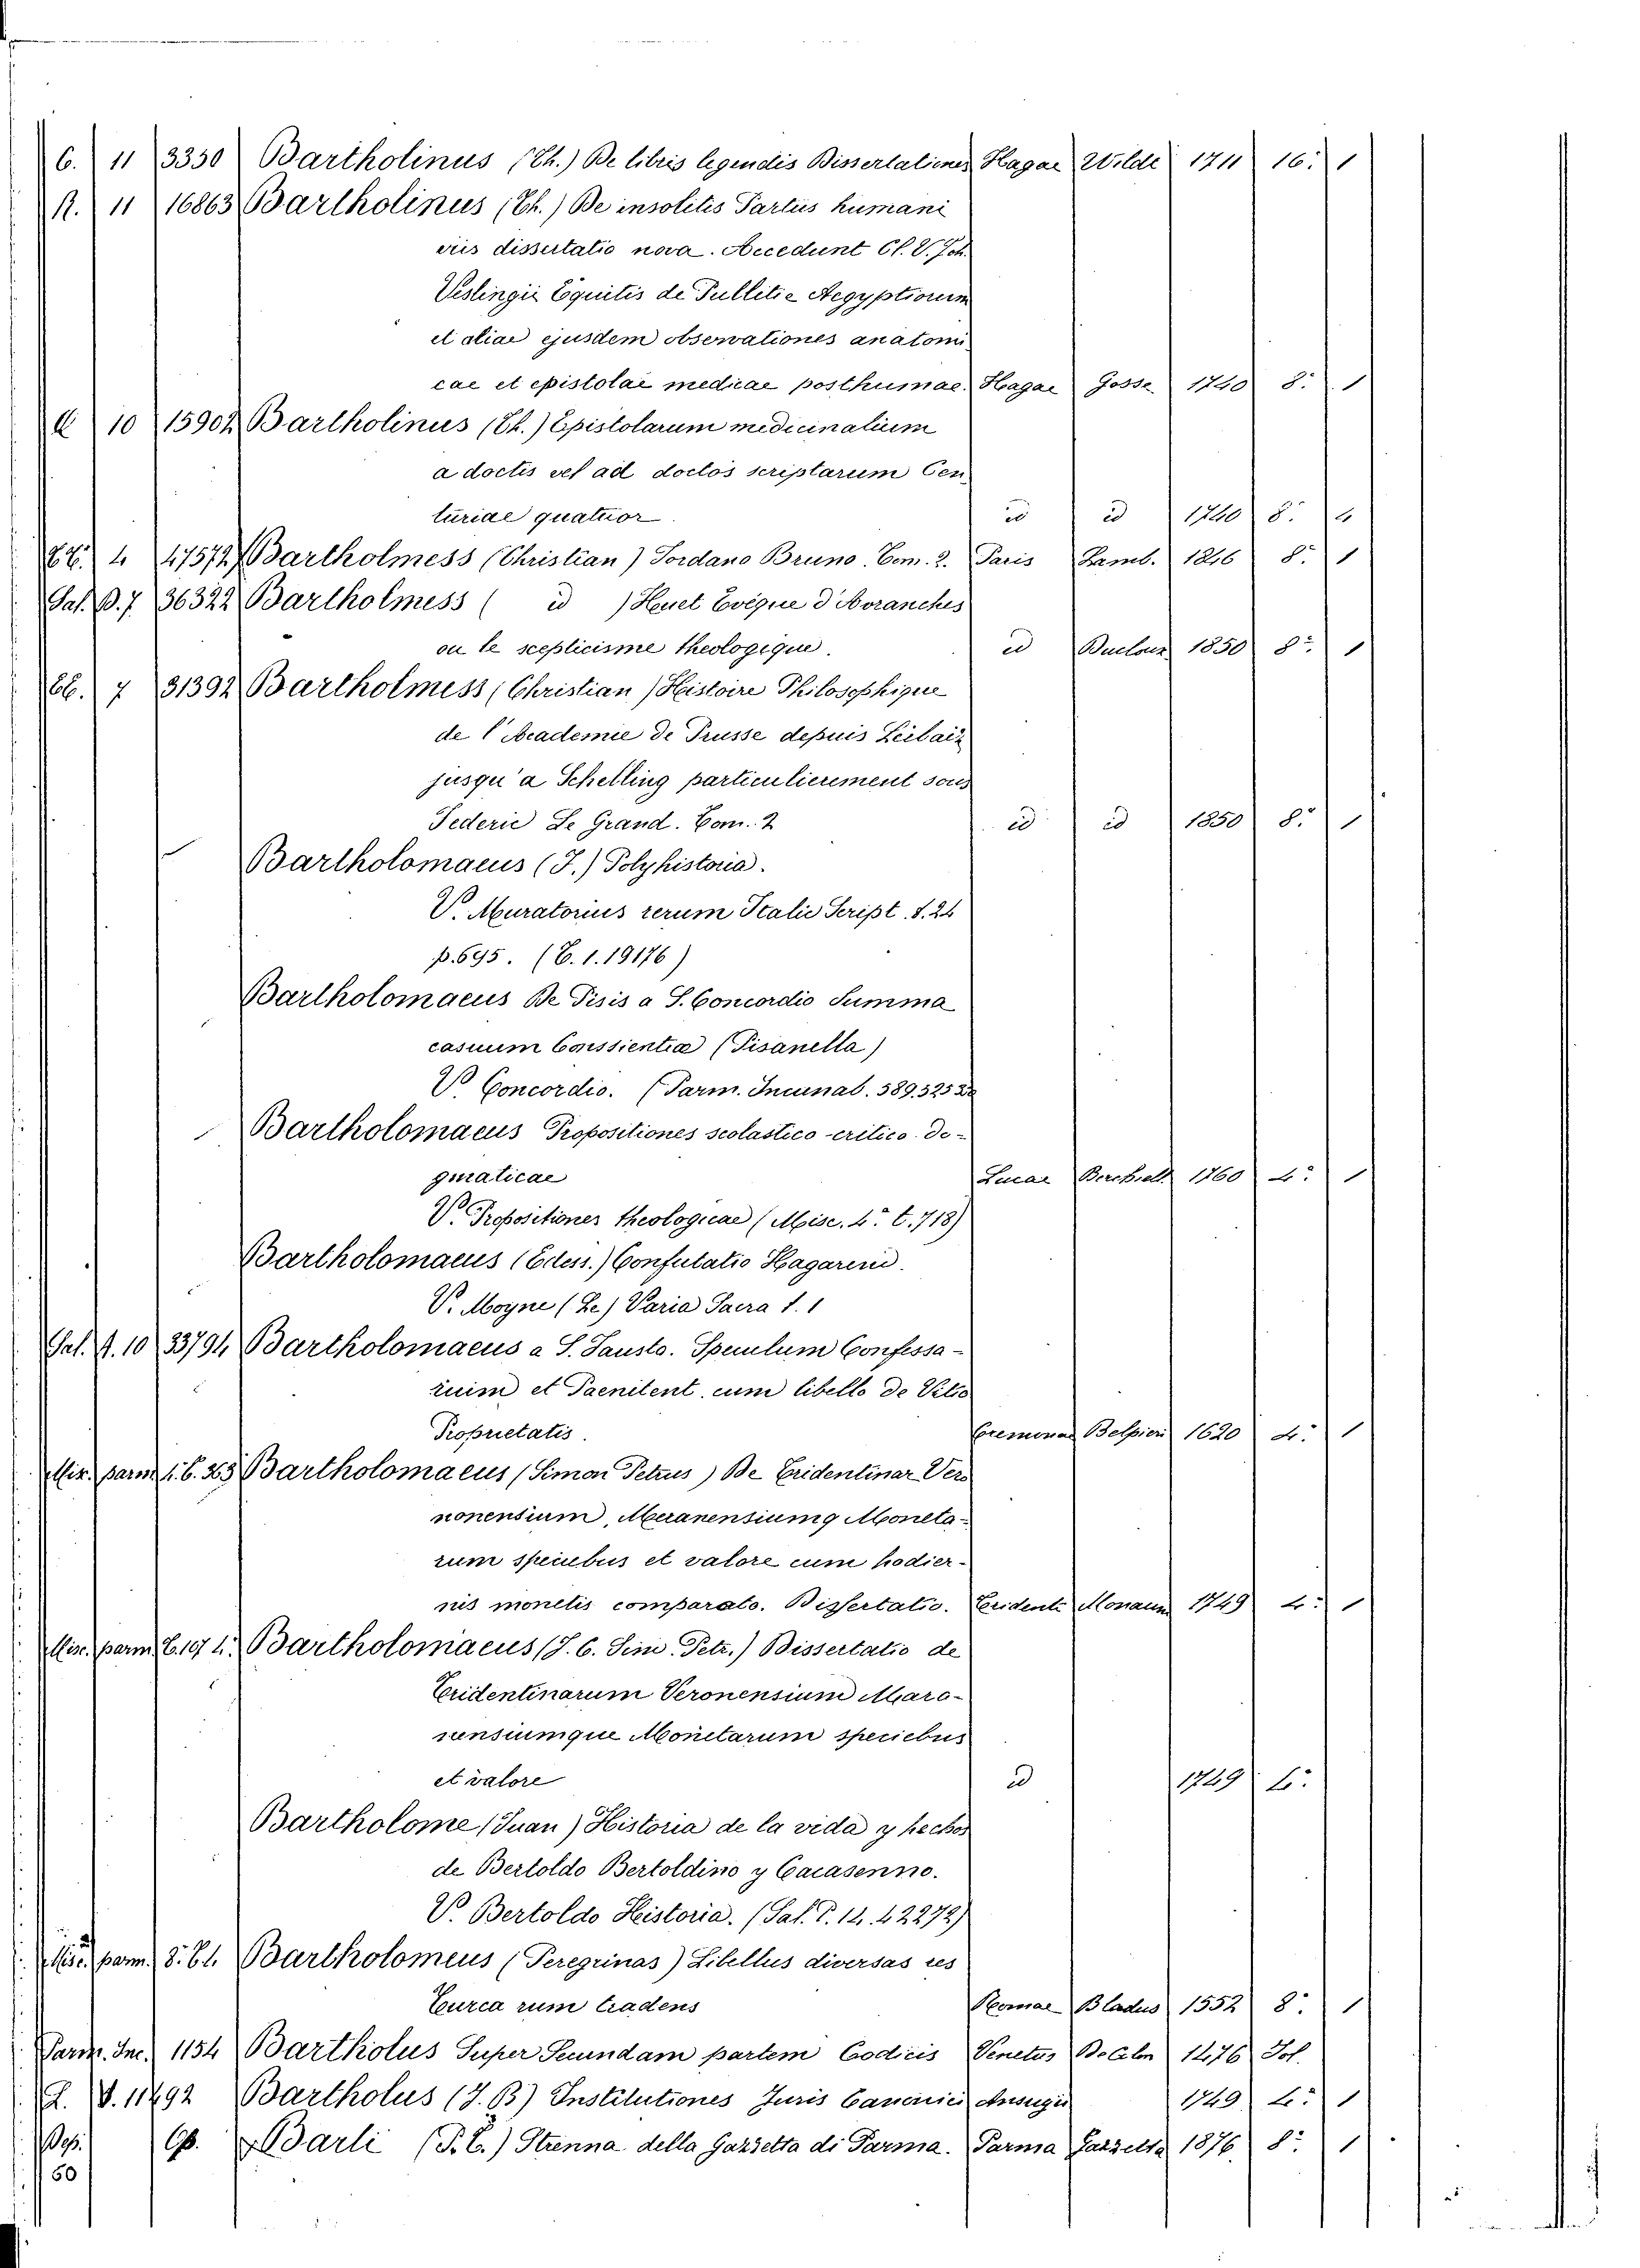 6. 11 3350 Bartholinus (Th.) De libris legendis Dissertationes Hagae Wilde 1711 16.° 1
R. 11 16863 Bartholinus (Th.) De insolitis Partus humani
viis dissertatio nova. Accedunt Cl. V. Joh.
Veslingii Equitis de Pullitie Aegyptiorum
et aliae ejusdem observationes anatomi
cae et epistolae medicae posthumae. Hagae Gosse 1740 8.° 1
10 15902 Bartholinus (Th.) Epistolarum medicinalium
a doctis vel ad doctos scriptarum Cen
turiae quatuor id id 1740 8.° 4
4 47572 Bartholmess (Christian) Jordano Bruno. Tom. 2. Paris Lamb. 1846 8.° 1
Sal. B. 7. 36322 Bartholmess ( id ) Huet Evêque d'Avranches
ou le scepticisme theologique. id Ducloux 1850 8.° 1
7 31392 Bartholmess (Christian) Histoire Philosophique
de l'Academie de Prusse depuis Leibniz
jusqu'a Schelling particulierement sous
Federic Le Grand. Tom. 2 id id 1850 8.° 1
Bartholomaeus (J.) Polyhistoria.
V. Muratorius rerum Italic Script. t. 24
p. 695. (E. 1. 19176)
Bartholomaeus De Pisis a S. Concordio Summa
casuum Conssientiae (Pisanella)
V. Concordio. (Parm. Incunab. 589. 525
Bartholomaeus Propositiones scolastico-critico-do-
gmaticae Lucae 1760 4.° 1
V. Propositiones theologicae (Misc. 4.° t. 718)
Bartholomaeus (Edess.) Confutatio Hagareni.
V. Moyne (Le) Varia Sacra t. 1
Sal. A. 10 33794 Bartholomaeus a S. Fausto. Speculum Confessa-
ruim et Paenitent. cum libello de Vitio
Proprietatis. Cremonae Belpieri 1620 4.° 1
Mis. parm 4. t. 323 Bartholomaeus (Simon Petrus) De Tridentinar Vero
nonensium, Meranensiumq Moneta-
rum speciebus et valore cum hodier-
nis monetis comparato. Dissertatio. Tridenti Monaun 1749 4.° 1
Mis. parm t. 197 4.° Bartholomaeus (J. C. Sim. Petr.) Dissertatio de
Tridentinarum Veronensium Maro-
nensiumque Monetarum speciebus
et valore id 1749 4.°
Bartholome (Juan) Historia de la vida y hechos
de Bertoldo Bertoldino y Cacasenno.
V. Bertoldo Historia. (Sal. P. 14. 42272)
Misc. parm. 8.° t. Bartholomeus (Peregrinas) Libellus diversas res
Turca rum tradens Romae Bladus 1552 8.° 1
Parm. Inc. 1154 Bartholus Super Secundam partem Codicis Venetiis 1476 Fol.
L. V. 11492 Bartholus (J. B) Institutiones Juris Canonici 1749 4.° 1
Dep. Op. Barli (P. C.) Strenna della Gazzetta di Parma. Parma Gazzetta 1876 8.° 1
50